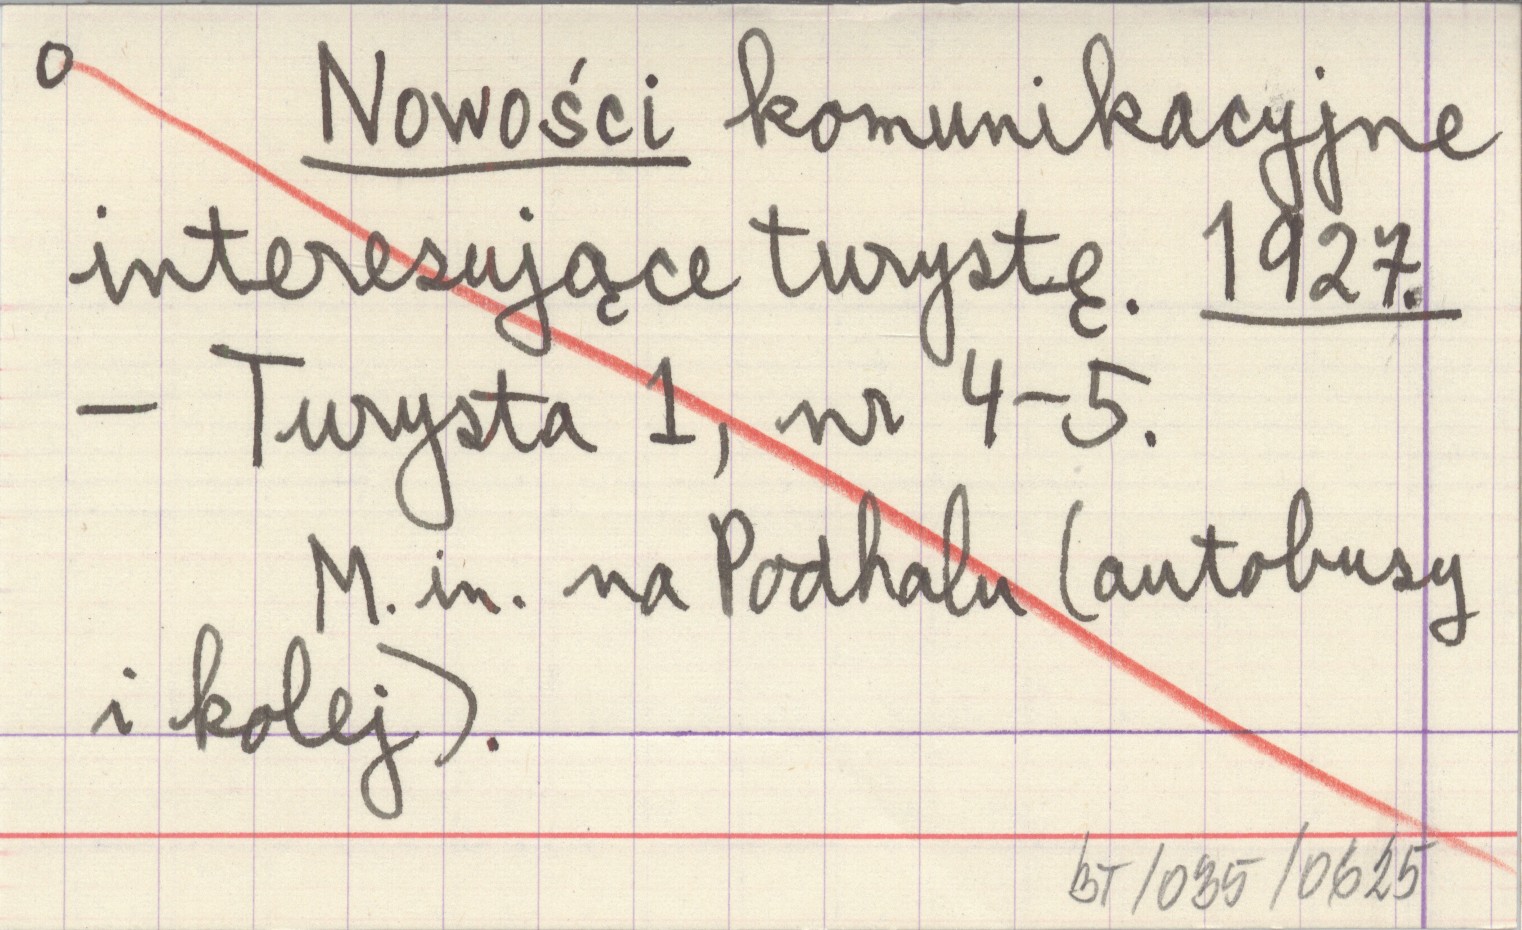 o Nowości komunikacyjne
interesujące turystę. 1927.
— Turysta 1, nr 4-5.
M. in. na Podhalu (autobusy
i kolej).
BT/035/0625